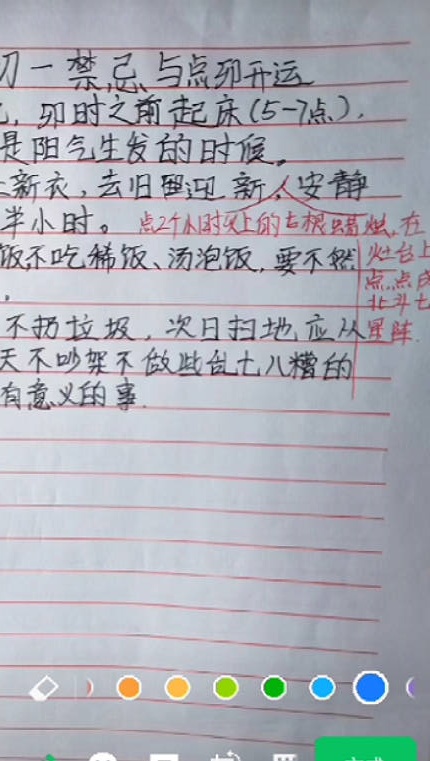 刀一禁忌与点卯开运
,卯时之前起床(5-7点),
是阳气生发的时候。
新衣,去旧迎新,安静
半小时。
点2个小时以上的七根蜡烛,在
灶台上
点,点成
北斗七
星阵.
饭,不吃稀饭、汤泡饭,要不然
不扔垃圾,次日扫地,应从
天不吵架不做些乱七八糟的
有意义的事.